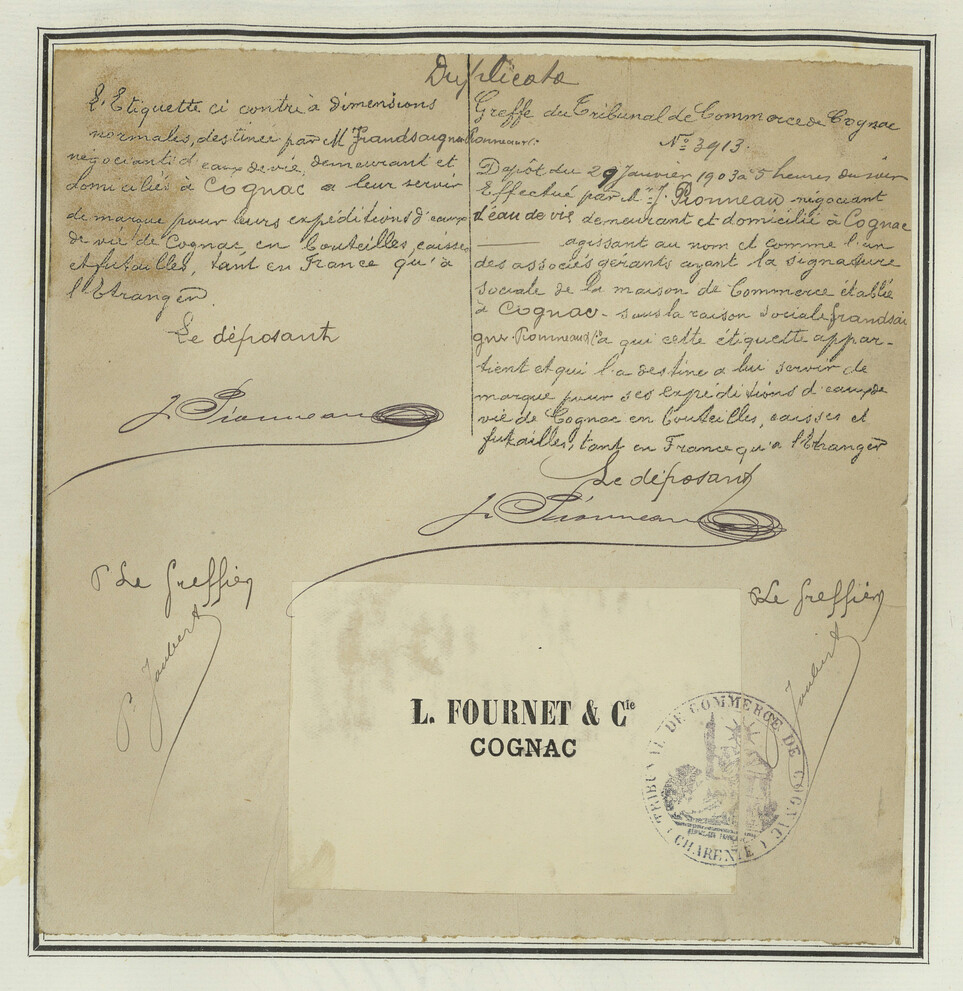 Duplicata
L'Etiquette ci contre à dimensions
normales, destinée par M Frandsaignes Pionneau
négociants d'eaux de vie, demeurant et
domiciliés à Cognac a leur servir
de marque pour leurs expéditions d'eaux
de vie de Cognac en bouteilles, caisses
et futailles, tant en France qu'à
l'Etranger.
Le déposant
J Pionneau
Greffe du Tribunal de Commerce de Cognac
No 3913.
Dépôt du 29 Janvier 1903 à 5 heures du soir
Effectué par Mr J. Pionneau négociant
d'eau de vie demeurant et domicilié à Cognac
agissant au nom et comme l'un
des associés gérants ayant la signature
sociale de la maison de Commerce établie
à Cognac - sous la raison sociale frandsai
gnes. Pionneau & Cie a qui cette étiquette appar-
tient et qui l'a destine a lui servir de
marque pour ses expéditions d'eaux de
vie de Cognac en bouteilles, caisses et
futailles, tant en France qu'a l'Etranger
Le déposant
J. Pionneau
P Le Greffier
P. Joubert
P Le Greffier
Joubert
L. FOURNET & Cie
COGNAC
TRIBUNAL DE COMMERCE DE COGNAC
(CHARENTE)